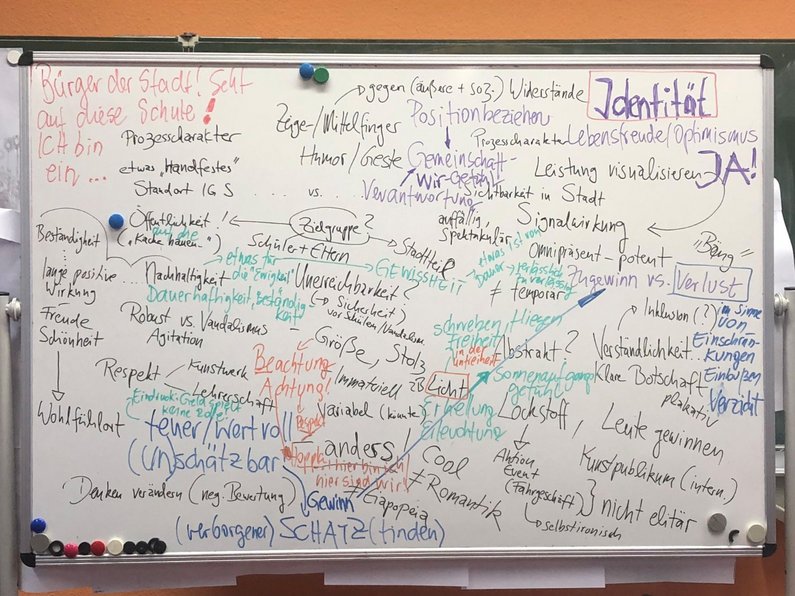 Bürger der Stadt! Seht
auf diese Schule!
ICH bin
ein ...
gegen (äußere + soz.) Widerstände
Identität
Zeige-/Mittelfinger
Positionbeziehen
Prozesscharakter
Prozesscharakter
Lebensfreude/Optimismus
Humor/Geste
Gemeinschaft-
Wir-Gefühl
etwas „Handfestes"
Leistung visualisieren
JA!
Standort IGS ..... vs.
Verantwortung
Sichtbarkeit in Stadt
auffällig,
spektakulär
Signalwirkung
Öffentlichkeit!
Zielgruppe?
("Kacke bauen..")
Schüler + Eltern
Stadtteil
omnipräsent - potent
"Bäng"
Beständigkeit
etwas für
die "Ewigkeit"
GEWISSHEIT
etwas ist von
Dauer
verlässlich
zuverlässig
Zugewinn vs. Verlust
lange positive
Wirkung
Nachhaltigkeit
Unerreichbarkeit?
≠ temporär
Dauerhaftigkeit, Beständig
keit
(→ Sicherheit)
vor Schülern/Vandalism.
Inklusion (?)
im Sinne
von
Einschrän-
kungen
Einbußen
Verzicht
Freude
Schönheit
Robust vs. Vandalismus
Agitation
schweben, fliegen
Freiheit
in der
Unfreiheit
Größe, Stolz
Abstrakt?
Verständlichkeit...
Beachtung
Achtung!
Respekt
Respekt
Kunstwerk
Lehrerschaft
Immateriell zB
Licht
Sonnenaufgang
gefühl
Klare Botschaft
plakativ
Eindruck: Geld spielt
keine Rolle!
Wohlfühlort
Variabel (könnte)
Erhellung
Erleuchtung
Lockstoff,
Leute gewinnen
teuer/Wertvoll
(Un)schätzbar
anders!
hier bin ich
hier sind wir!
Cool
≠ Romantik
Aktion
Event
(Fahrgeschäft)
Kunstpublikum (intern.)
nicht elitär
selbstironisch
Denken verändern (neg. Bewertung)
Gewinn
≠ Eiapopeia
(verborgener) SCHATZ (finden)